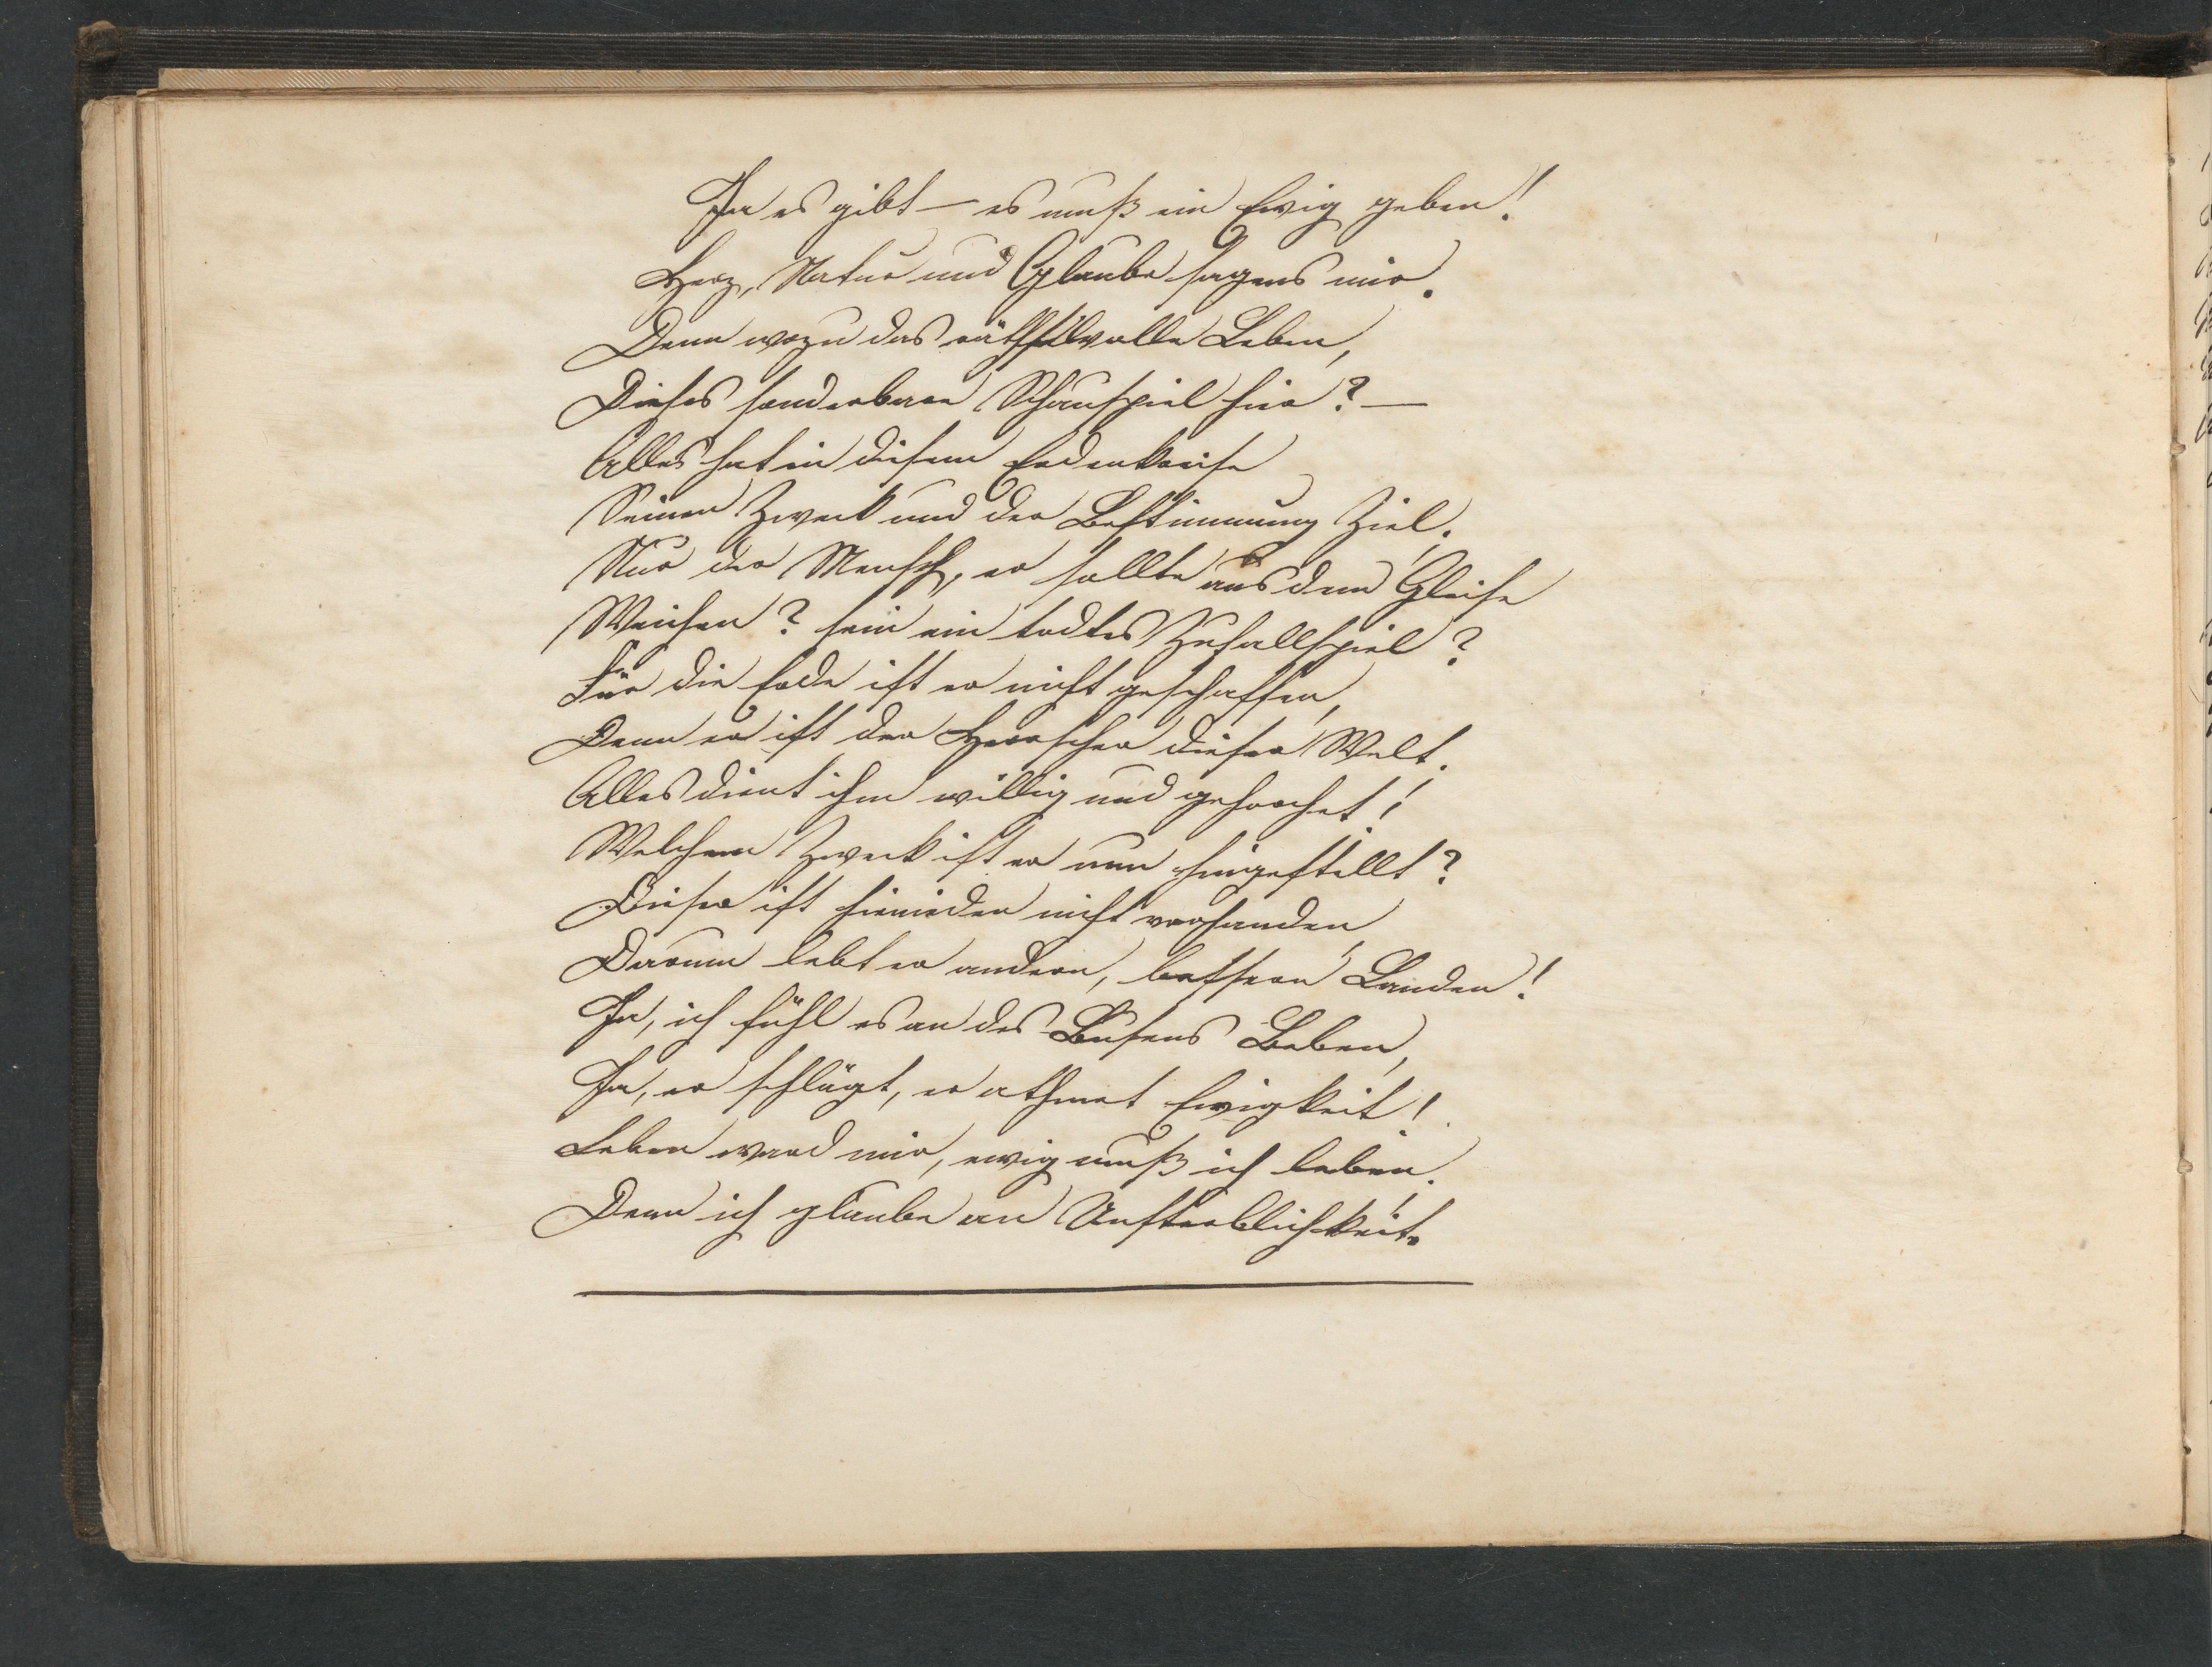 Ja es gibt – es muß ein Ewig geben!
Herz, Natur und Glaube sagens mir.
Denn wozu das räthselvolle Leben,
Dieses sonderbare Schauspiel hier? –
Alles hat in diesem Erdenkreise
Seinen Zweck und der Bestimmung Ziel.
Nur der Mensch, er sollte aus dem Gleise
Weichen? sein ein todtes Zufallspiel?
Für die Erde ist er nicht geschaffen,
Denn er ist der Herrscher dieser Welt.
Alles dient ihm willig und gehorchet!
Welchem Zweck ist er nun hingestellt?
Dieser ist hienieden nicht vorhanden
Darum lebt er andern, bessern Landen!
Ja, ich fühl es an des Busens Beben,
Ja, er schlägt, er athmet Ewigkeit!
Leben ward mir, ewig muß ich leben.
Denn ich glaube an Unsterblichkeit.